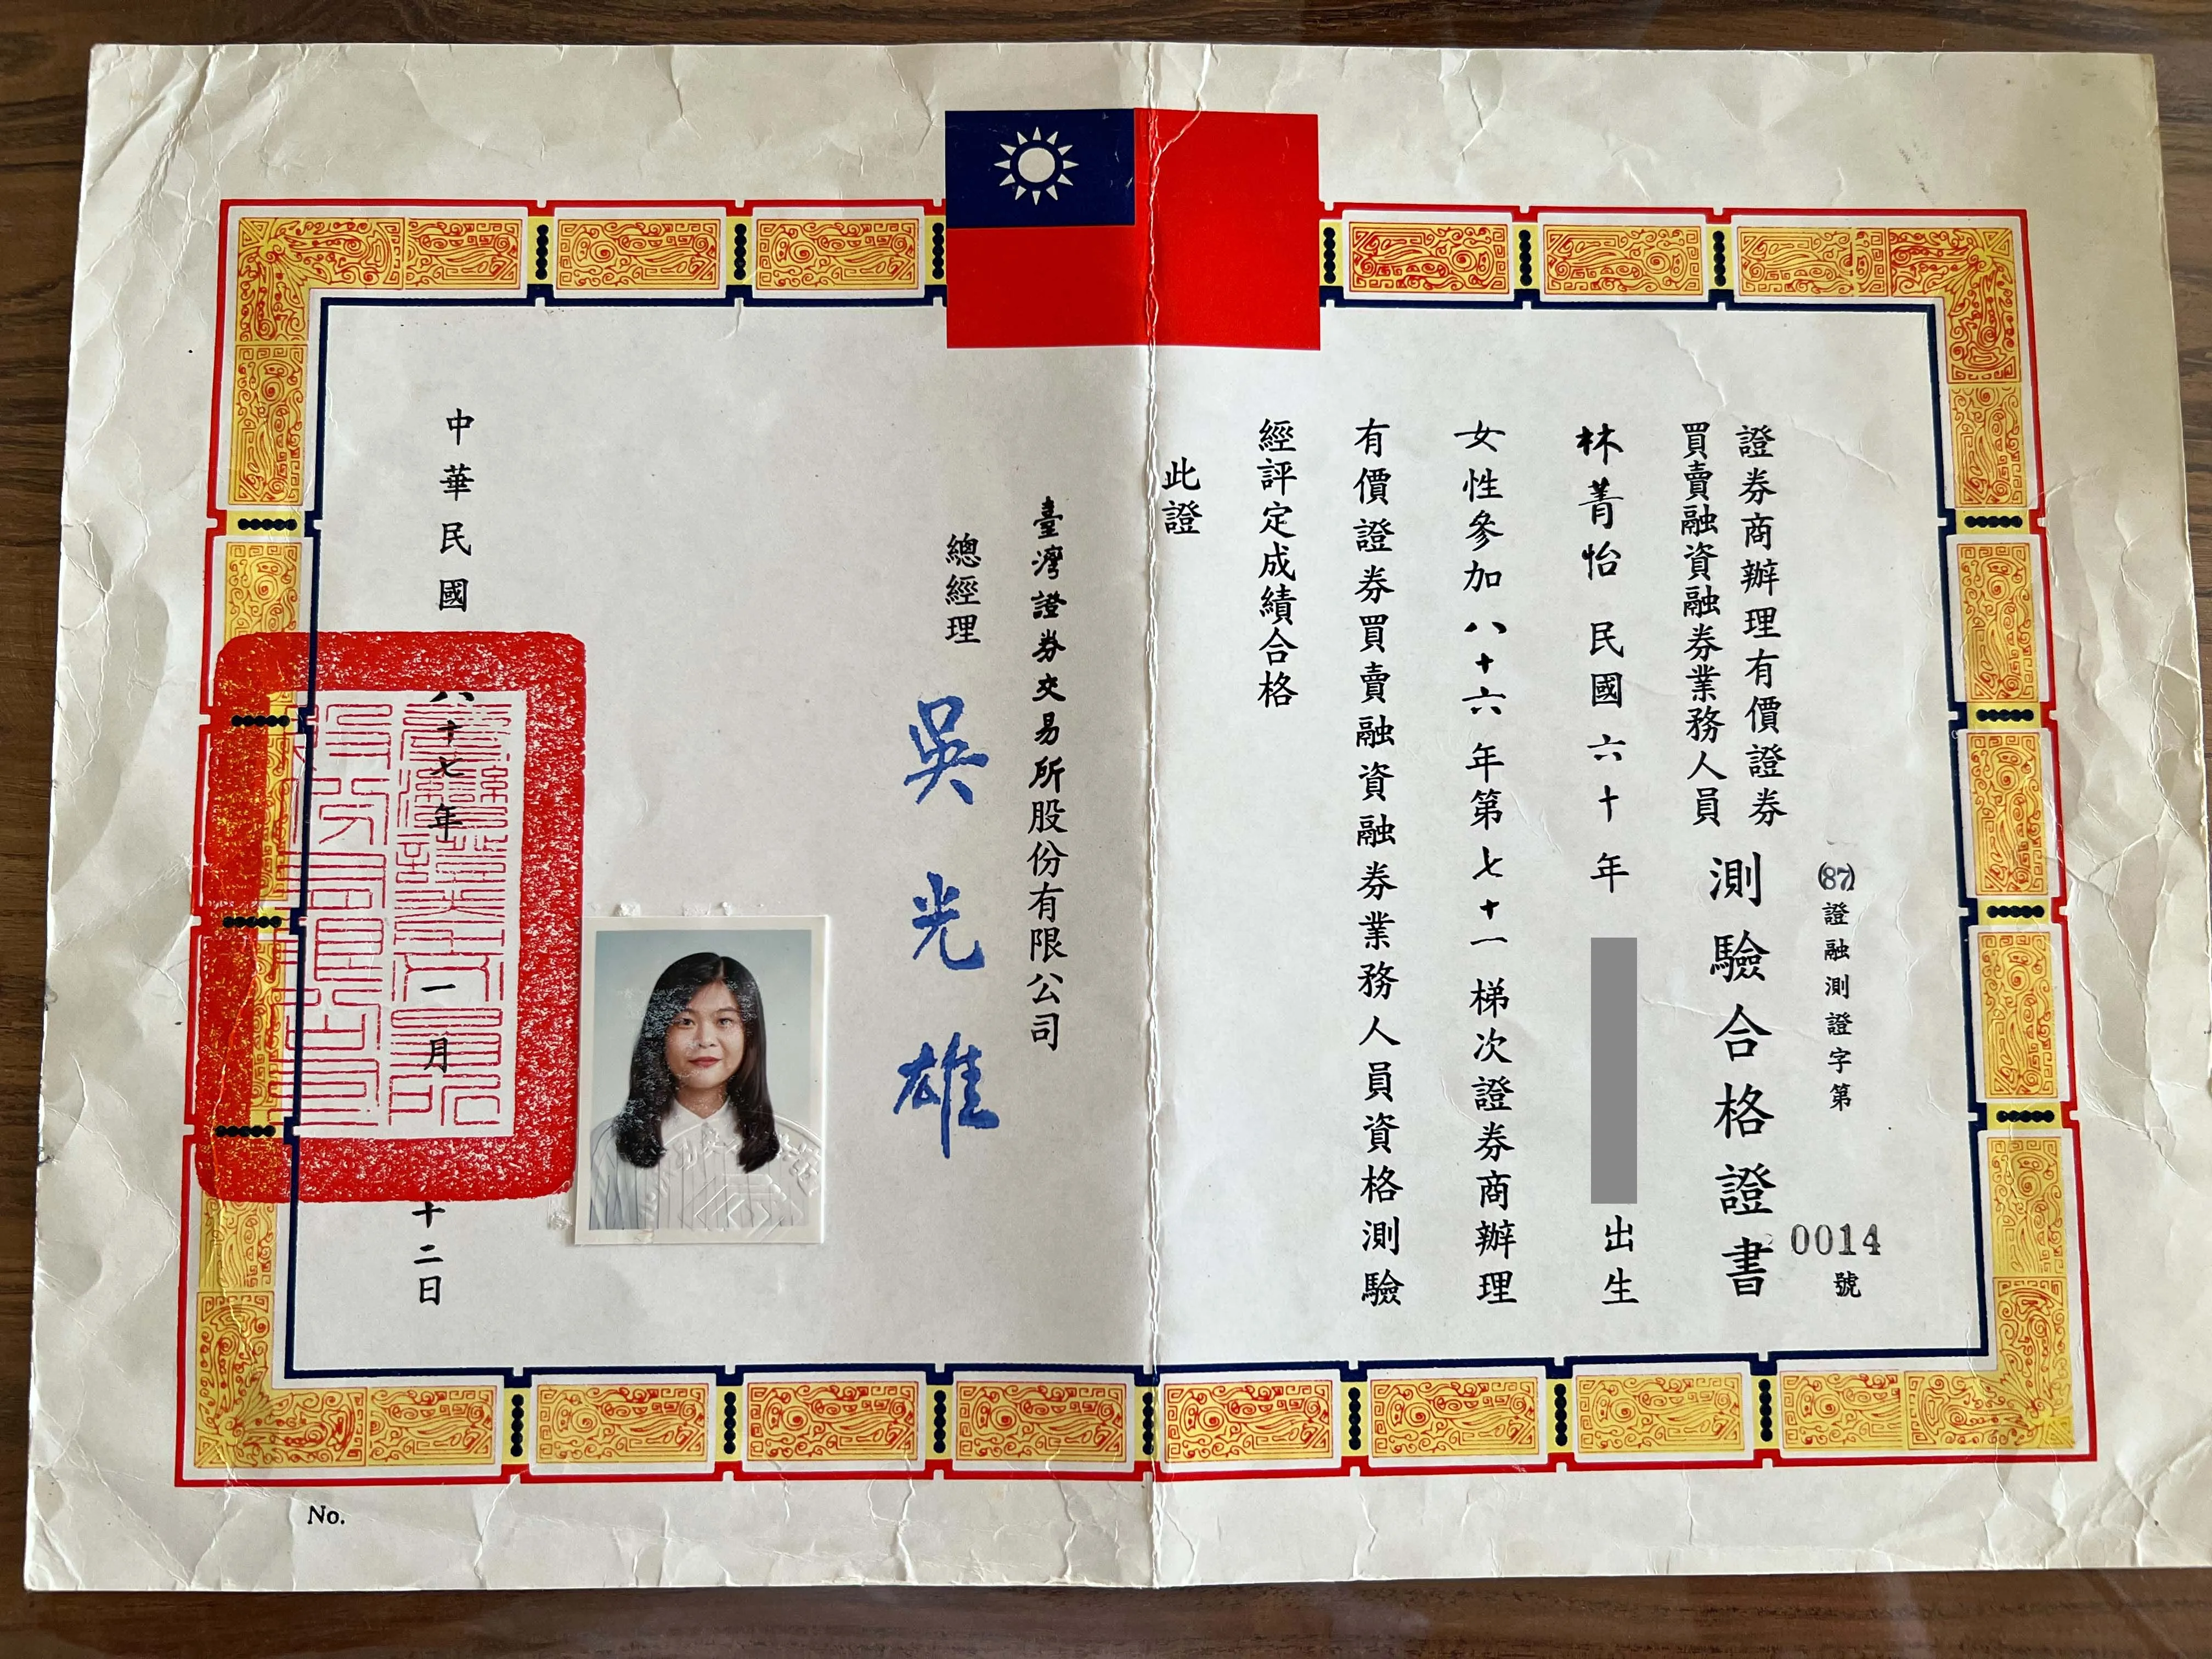 (87)證融測證字第0014號
證券商辦理有價證券
買賣融資融券業務人員
測驗合格證書
林菁怡 民國六十年
出生
女性參加八十六年第七十一梯次證券商辦理
有價證券買賣融資融券業務人員資格測驗
經評定成績合格
此證
臺灣證券交易所股份有限公司
總經理 吳光雄
中華民國八十七年一月十二日
No.